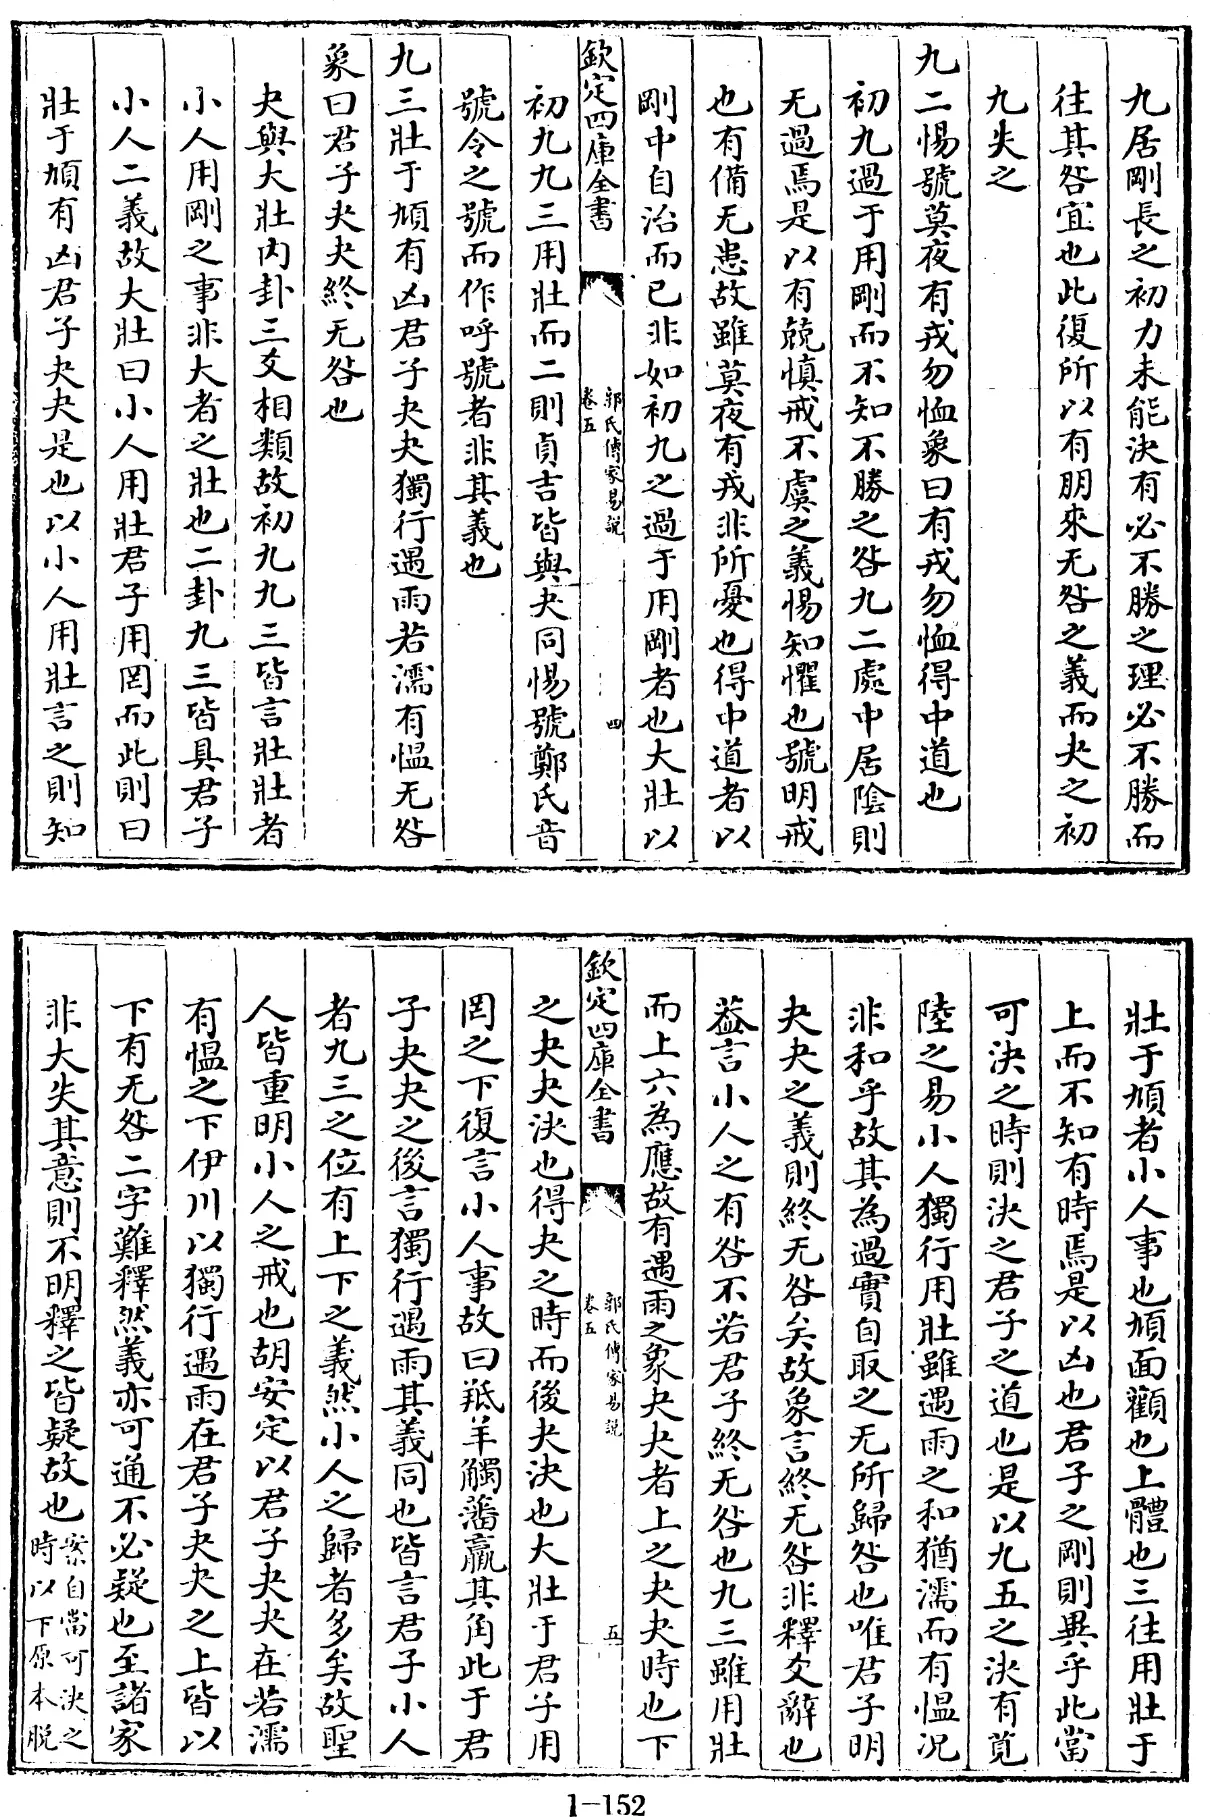 九居剛長之初力未能決有必不勝之理必不勝而
往其咎宜也此復所以有朋來无咎之義而夬之初
九失之
九二惕號莫夜有戎勿恤象曰有戎勿恤得中道也
初九過于用剛而不知不勝之咎九二處中居陰則
无過焉是以有兢慎戒不虞之義惕知懼也號明戒
也有備无患故雖莫夜有戎非所憂也得中道者以
剛中自治而已非如初九之過于用剛者也大壯以
欽定四庫全書
郭氏傳家易說
卷五
四
初九九三用壯而二則貞吉皆與夬同惕號鄭氏音
號令之號而作呼號者非其義也
九三壯于頄有凶君子夬夬獨行遇雨若濡有愠无咎
象曰君子夬夬終无咎也
夬與大壯内卦三爻相類故初九九三皆言壯壯者
小人用剛之事非大者之壯也二卦九三皆具君子
小人二義故大壯曰小人用壯君子用罔而此則曰
壯于頄有凶君子夬夬是也以小人用壯言之則知
壯于頄者小人事也頄面顴也上體也三往用壯于
上而不知有時焉是以凶也君子之剛則異乎此當
可決之時則決之君子之道也是以九五之決有莧
陸之易小人獨行用壯雖遇雨之和猶濡而有愠况
非和乎故其為過實自取之无所歸咎也唯君子明
夬夬之義則終无咎矣故象言終无咎非釋爻辭也
葢言小人之有咎不若君子終无咎也九三雖用壯
而上六為應故有遇雨之象夬夬者上之夬夬時也下
欽定四庫全書
郭氏傳家易說
卷五
五
之夬夬決也得夬之時而後夬決也大壯于君子用
罔之下復言小人事故曰羝羊觸藩羸其角此于君
子夬夬之後言獨行遇雨其義同也皆言君子小人
者九三之位有上下之義然小人之歸者多矣故聖
人皆重明小人之戒也胡安定以君子夬夬在若濡
有愠之下伊川以獨行遇雨在君子夬夬之上皆以
下有无咎二字難釋然義亦可通不必疑也至諸家
非大失其意則不明釋之皆疑故也
案自當可決之
時以下原本脱
1-152